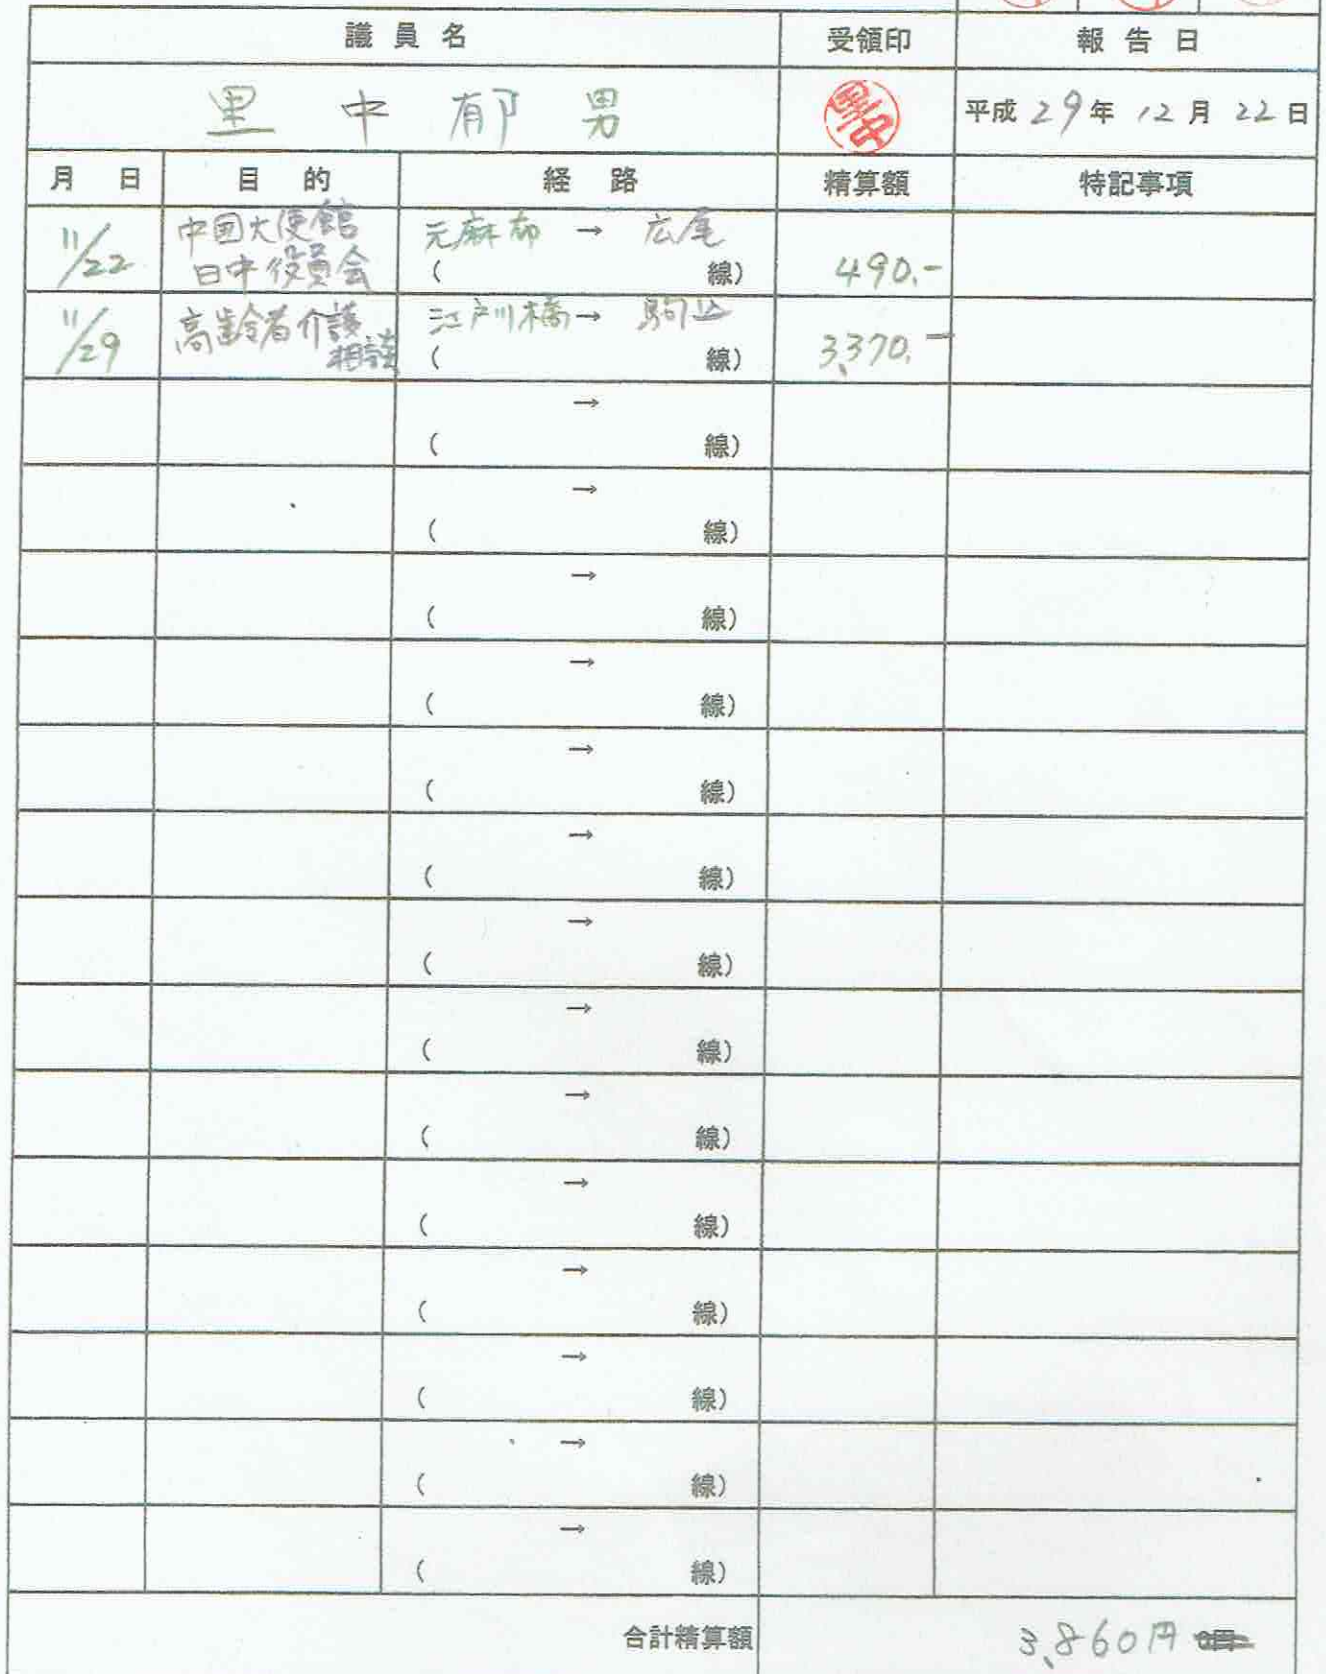 議員名 受領印 報告日
里中郁男 里中 平成29年12月22日
月日 目的 経路 精算額 特記事項
11/22 中国大使館 元麻布 → 広尾
日中役員会 ( 線) 490.-
11/29 高齢者介護 江戸川橋 → 駒込
相談 ( 線) 3,370.-
→
( 線)
→
( 線)
→
( 線)
→
( 線)
→
( 線)
→
( 線)
→
( 線)
→
( 線)
→
( 線)
→
( 線)
→
( 線)
→
( 線)
→
( 線)
→
( 線)
合計精算額 3,860円